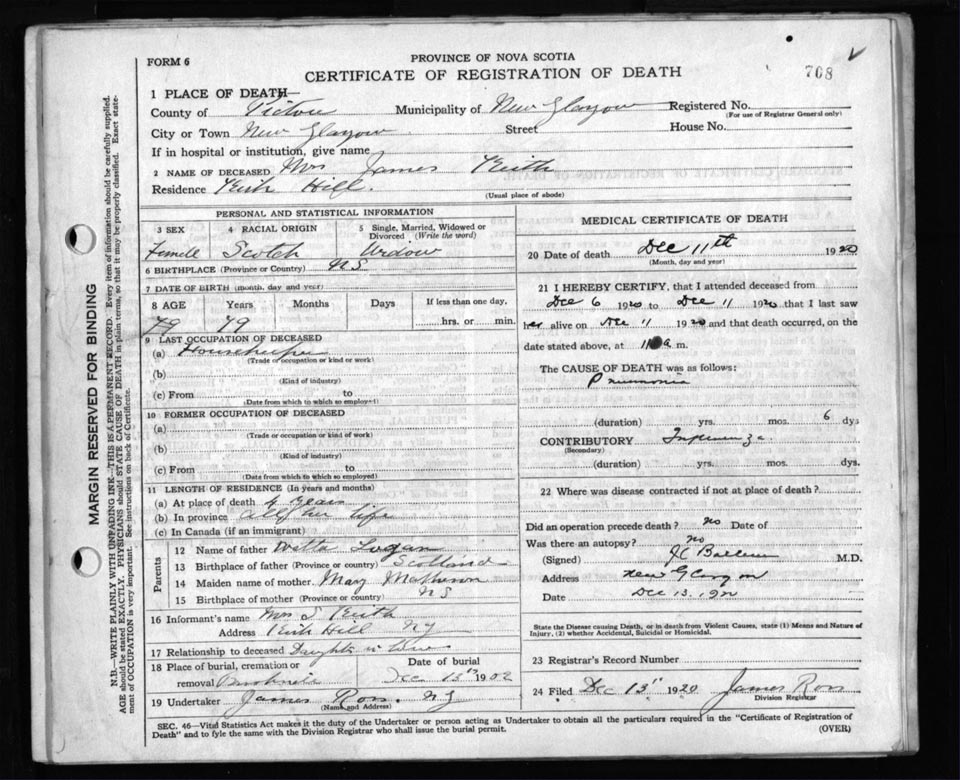 FORM 6
PROVINCE OF NOVA SCOTIA
CERTIFICATE OF REGISTRATION OF DEATH
708
1 PLACE OF DEATH—
County of Pictou Municipality of New Glasgow Registered No.
(For use of Registrar General only)
City or Town New Glasgow Street House No.
If in hospital or institution, give name
2 NAME OF DECEASED Mrs James Keith
Residence Keith Hill.
(Usual place of abode)
MARGIN RESERVED FOR BINDING
N.B.—WRITE PLAINLY WITH UNFADING INK—THIS IS A PERMANENT RECORD. Every item of information should be carefully supplied.
AGE should be stated EXACTLY. PHYSICIANS should STATE CAUSE OF DEATH in plain terms, so that it may be properly classified. Exact state-
ment of OCCUPATION is very important. See instructions on back of Certificate.
PERSONAL AND STATISTICAL INFORMATION
3 SEX 4 RACIAL ORIGIN 5 Single, Married, Widowed or
Divorced (Write the word)
Female Scotch Widow
6 BIRTHPLACE (Province or Country) NS
7 DATE OF BIRTH (month, day and year)
8 AGE Years Months Days If less than one day,
79 79 hrs. or min.
9 LAST OCCUPATION OF DECEASED
(a) Housekeeper
(Trade or occupation or kind or work)
(b)
(Kind of industry)
(c) From to
(Date from which to which so employed)
10 FORMER OCCUPATION OF DECEASED
(a)
(Trade or occupation or kind of work)
(b)
(Kind of industry)
(c) From to
(Date from which to which so employed)
11 LENGTH OF RESIDENCE (In years and months)
(a) At place of death 4 years
(b) In province all her life
(c) In Canada (if an immigrant)
Parents
12 Name of father Logan
13 Birthplace of father (Province or country) Scotland
14 Maiden name of mother. Mary Matheson
15 Birthplace of mother (Province or country) NS
16 Informant's name Mrs S Keith
Address Keith Hill NG
17 Relationship to deceased Daughter in Law
18 Place of burial, cremation or Date of burial
removal Dec 13th 1902
19 Undertaker James Ross NG
(Name and Address)
MEDICAL CERTIFICATE OF DEATH
20 Date of death Dec 11th 1920
(Month, day and year)
21 I HEREBY CERTIFY, that I attended deceased from
Dec 6 1920 to Dec 11 1920 that I last saw
her alive on Dec 11 1920 and that death occurred, on the
date stated above, at 11 a m.
The CAUSE OF DEATH was as follows:
Pneumonia
(duration) yrs. mos. 6 dys
CONTRIBUTORY Influenza
(Secondary)
(duration) yrs. mos. dys.
22 Where was disease contracted if not at place of death?
Did an operation precede death? no Date of
Was there an autopsy? no
(Signed) M.D.
Address New Glasgow
Date Dec 13. 1920
State the Disease causing Death, or in death from Violent Causes, state (1) Means and Nature of
Injury, (2) whether Accidental, Suicidal or Homicidal.
23 Registrar's Record Number
24 Filed Dec 13th 1920 James Ross
Division Registrar
SEC. 46—Vital Statistics Act makes it the duty of the Undertaker or person acting as Undertaker to obtain all the particulars required in the "Certificate of Registration of
Death" and to fyle the same with the Division Registrar who shall issue the burial permit.
(OVER)